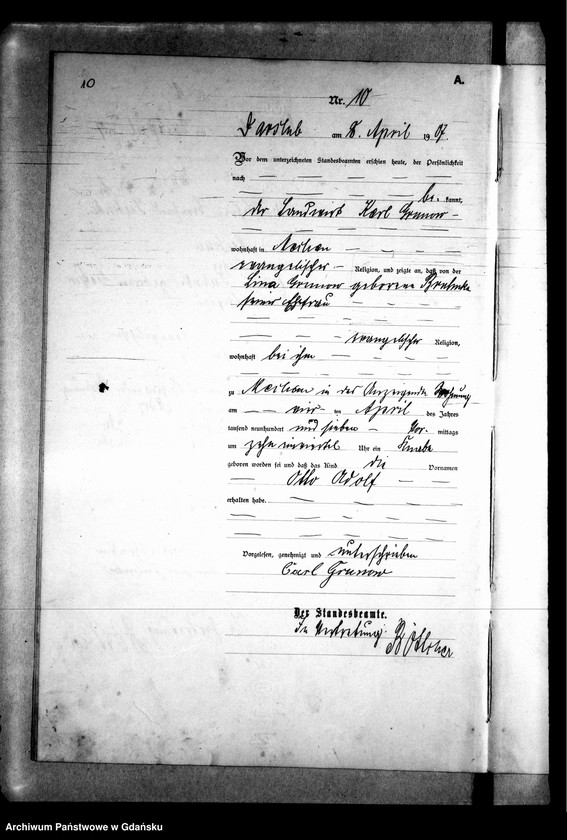 10
A.
Nr. 10
Darslub am 8. April 1907.
Vor dem unterzeichneten Standesbeamten erschien heute, der Persönlichkeit
nach — — — — —
— — — — be kannt,
der Landwirt Karl Grunow —
— — — — —
wohnhaft in — — —
evangelischer — Religion, und zeigte an, daß von der
Lina Grunow geborene
seiner Ehefrau — — —
— — — — —
— — — evangelischer Religion,
wohnhaft bei ihm — — — —
— — — — —
zu in des Anzeigenden Wohnung
am — — vier — ten April des Jahres
tausend neunhundert und sieben — Vor- mittags
um zehn Uhr ein Knabe
geboren worden sei und daß das Kind die Vornamen
— Otto Adolf — —
erhalten habe. — — — —
— — — — —
— — — — —
Vorgelesen, genehmigt und unterschrieben
Carl Grunow
Der Standesbeamte.
In Vertretung:
Archiwum Państwowe w Gdańsku